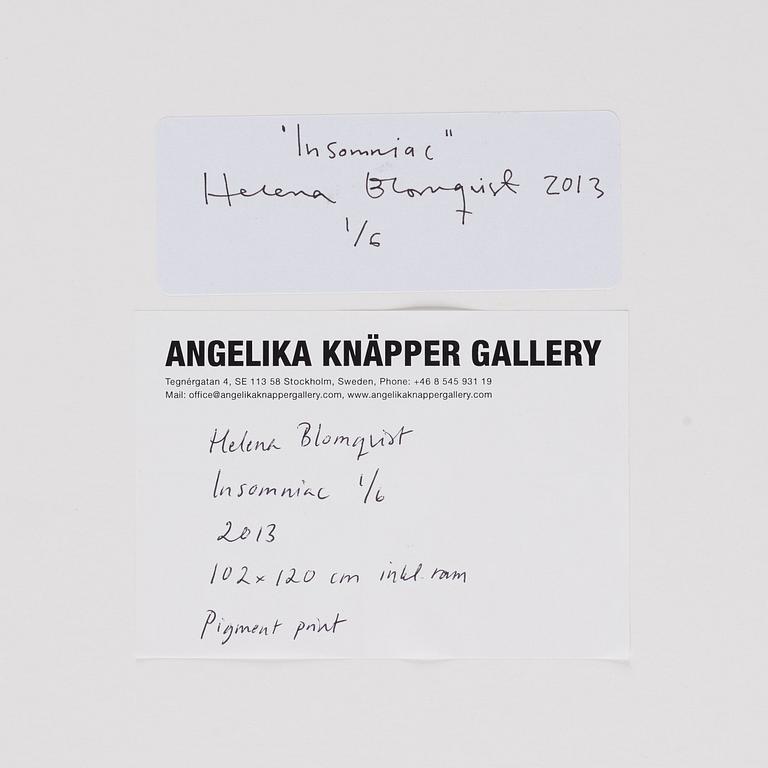 "Insomniac"
Helena Blomqvist 2013
1/6
ANGELIKA KNÄPPER GALLERY
Tegnérgatan 4, SE 113 58 Stockholm, Sweden, Phone: +46 8 545 931 19
Mail: office@angelikaknappergallery.com, www.angelikaknappergallery.com
Helena Blomqvist
Insomniac 1/6
2013
102 x 120 cm inkl. ram
Pigment print